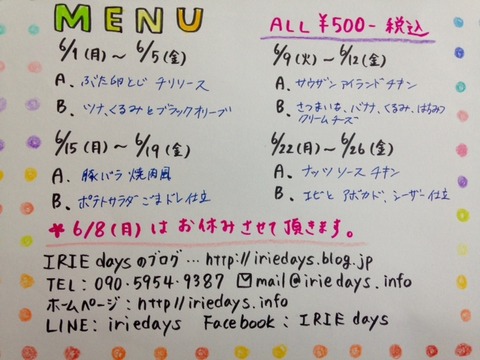 MENU
ALL ¥500- 税込
6/1 (月) ～ 6/5 (金)
A. ぶた卵とじ チリソース
B. ツナ、くるみとブラックオリーブ
6/9 (火) ～ 6/12 (金)
A. サウザンアイランドチキン
B. さつまいも、バナナ、くるみ、はちみつ
クリームチーズ
6/15 (月) ～ 6/19 (金)
A. 豚バラ 焼肉風
B. ポテトサラダごまドレ仕立
6/22 (月) ～ 6/26 (金)
A. ナッツソースチキン
B. エビとアボカド、シーザー仕立
* 6/8 (月) はお休みさせて頂きます。
IRIE daysのブログ… http://iriedays.blog.jp
TEL: 090-5954-9387 mail@iriedays.info
ホームページ: http://iriedays.info
LINE: iriedays Facebook: IRIE days